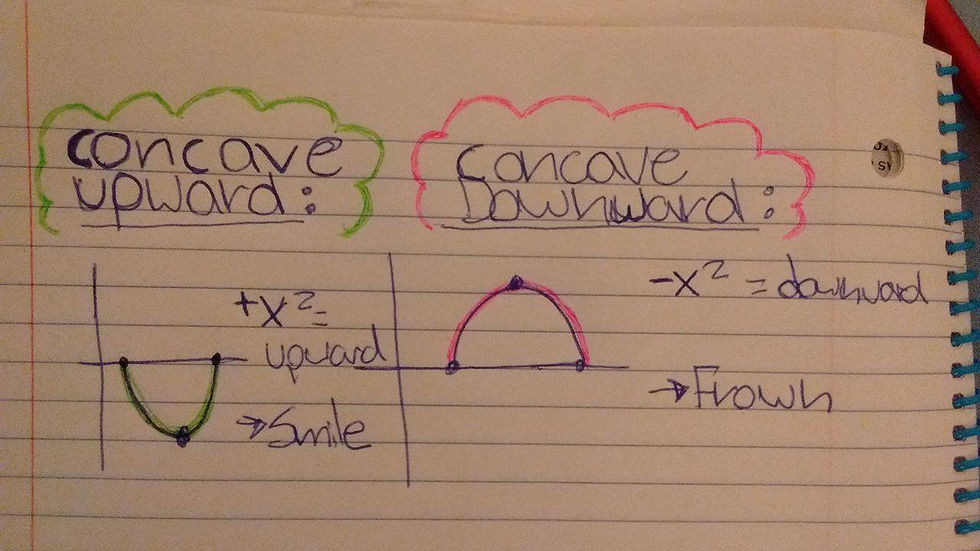 Concave
upward:
+x²=
upward
→Smile
Concave
Downward:
-x² = downward
→Frown